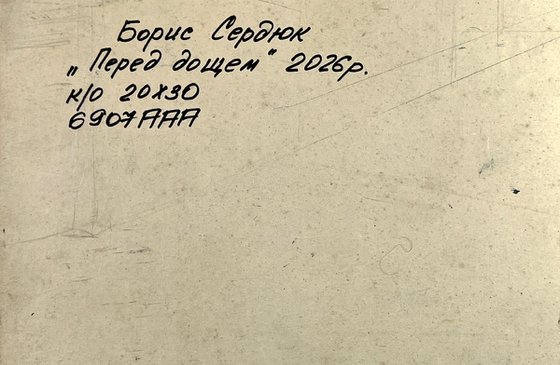 Борис Сердюк
„Перед дощем" 2026р.
к/о 20х30
6907ААА